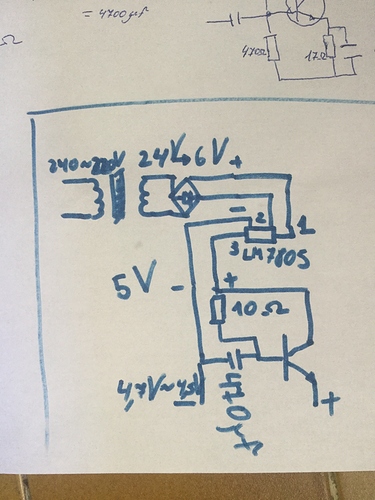 = 4700µF
Ω
470Ω
17Ω
240~220V
24V→6V +
-
2
1
3 LM7805
+
5V -
10Ω
4,7V~4,5V
470µF
+